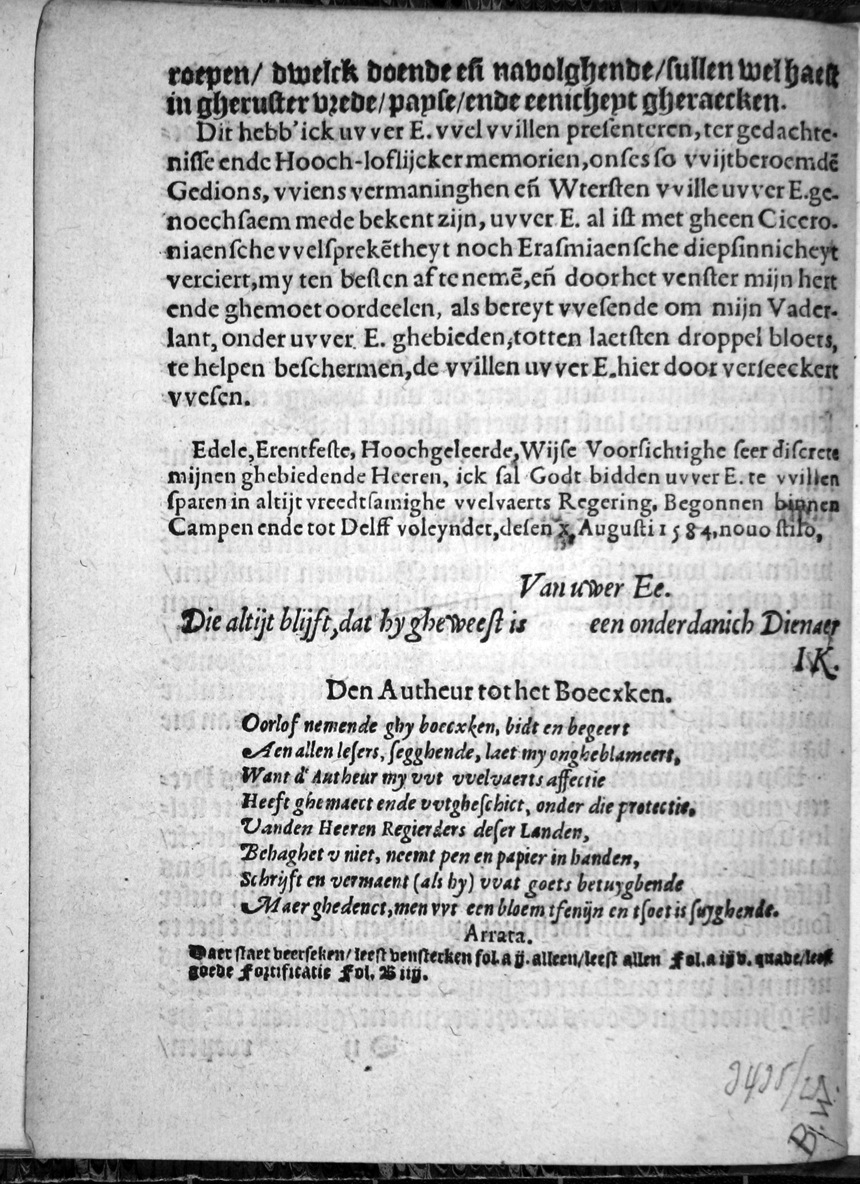 roepen/ dwelck doende eñ navolghende/sullen wel haest
in gheruster vrede/payse/ende eenicheyt gheraecken.
Dit hebb'ick uvver E. vvel vvillen presenteren, ter gedachte-
nisse ende Hooch-loflijcker memorien, onses so vvijtberoemdē
Gedions, vviens vermaninghen eñ Wtersten vville uvver E. ge-
noechsaem mede bekent zijn, uvver E. al ist met gheen Cicero-
niaensche vvelsprekētheyt noch Erasmiaensche diepsinnicheyt
verciert, my ten besten af te nemē, eñ door het venster mijn hert
ende ghemoet oordeelen, als bereyt vvesende om mijn Vader-
lant, onder uvver E. ghebieden, totten laetsten droppel bloets,
te helpen beschermen, de vvillen uvver E. hier door verseeckert
vvesen.
Edele, Erentfeste, Hoochgeleerde, Wijse Voorsichtighe seer discrete
mijnen ghebiedende Heeren, ick sal Godt bidden uvver E. te vvillen
sparen in altijt vreedtsamighe vvelvaerts Regering. Begonnen binnen
Campen ende tot Delff voleyndet, desen x. Augusti 1584, novo stilo,
Van uwer Ee.
Die altijt blijft, dat hy gheweest is een onderdanich Dienaer
I K.
Den Autheur tot het Boecxken.
Oorlof nemende ghy boecxken, bidt en begeert
Aen allen lesers, segghende, laet my ongheblameert,
Want d'Autheur my vvt vvelvaerts affectie
Heeft ghemaect ende vvtgheschict, onder die protectie,
Vanden Heeren Regierders deser Landen,
Behaghet v niet, neemt pen en papier in handen,
Schrijft en vermaent (als hy) vvat goets betuyghende
Maer ghedenct, men vvt een bloem tfenijn en tsoet is suyghende.
Arrata.
Daer staet veerseken/ leest vensterken fol. a ij. alleen/leest allen Fol. a iij v. quade/leest
goede Fortificatie Fol. B iiij.